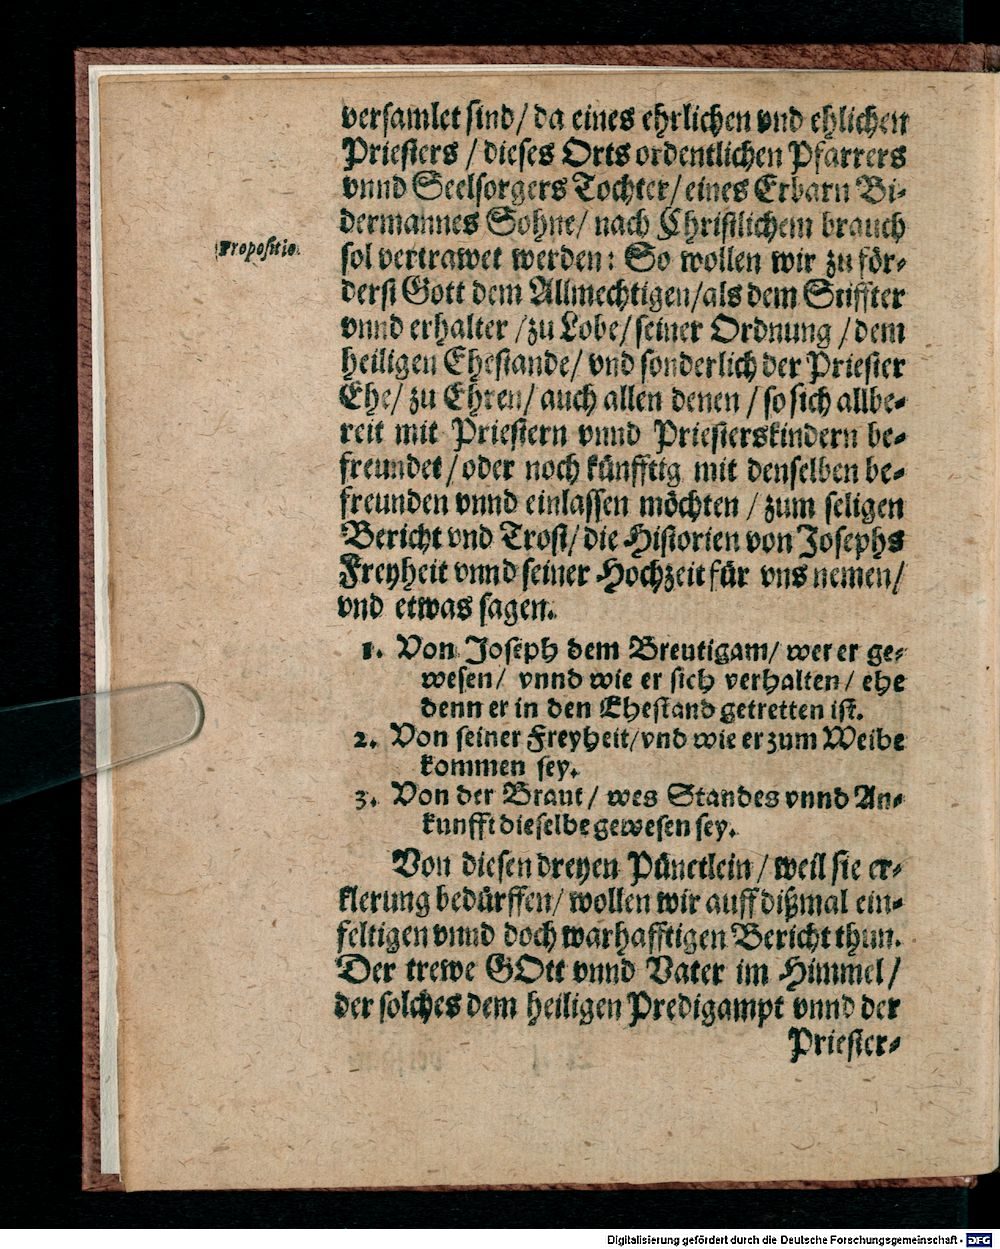 versamlet sind/ da eines ehrlichen vnd ehlichen
Priesters / dieses Orts ordentlichen Pfarrers
vnnd Seelsorgers Tochter/ eines Erbarn Bi-
dermannes Sohne/ nach Christlichem brauch
Propositio.
sol vertrawet werden: So wollen wir zu för-
derst Gott dem Allmechtigen/als dem Stiffter
vnnd erhalter /zu Lobe/ seiner Ordnung /dem
heiligen Ehestande/ vnd sonderlich der Priester
Ehe/ zu Ehren/ auch allen denen / so sich allbe-
reit mit Priestern vnnd Priesterskindern be-
freundet /oder noch künfftig mit denselben be-
freunden vnnd einlassen möchten / zum seligen
Bericht vnd Trost/ die Historien von Josephs
Freyheit vnnd seiner Hochzeit für vns nemen/
vnd etwas sagen.
1. Von Joseph dem Breutigam/ wer er ge-
wesen/ vnnd wie er sich verhalten/ ehe
denn er in den Ehestand getretten ist.
2. Von seiner Freyheit/vnd wie er zum Weibe
kommen sey.
3. Von der Braut/ wes Standes vnnd An-
kunfft dieselbe gewesen sey.
Von diesen dreyen Pünctlein / weil sie er-
klerung bedürffen/ wollen wir auff dißmal ein-
feltigen vnnd doch warhafftigen Bericht thun.
Der trewe GOtt vnnd Vater im Himmel/
der solches dem heiligen Predigampt vnnd der
Priester-
Digitalisierung gefördert durch die Deutsche Forschungsgemeinschaft - DFG